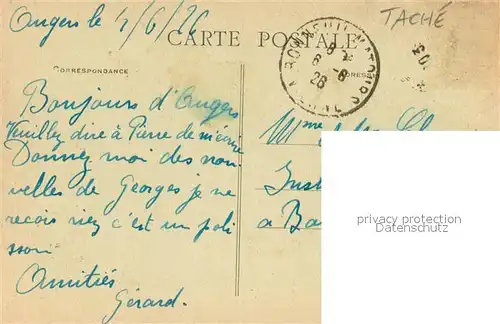 Angers le 4/6/26
TACHÉ
CARTE POSTALE
CORRESPONDANCE
ADRESSE
Bonjours d'Angers
Veuillez dire à Pierre de m'écrire
Donnez moi des nou-
velles de Georges je ne
recois riez c'est un poli
sson
Amitiés
Gérard.
Mme
Inst
a Ba
privacy protection
Datenschutz